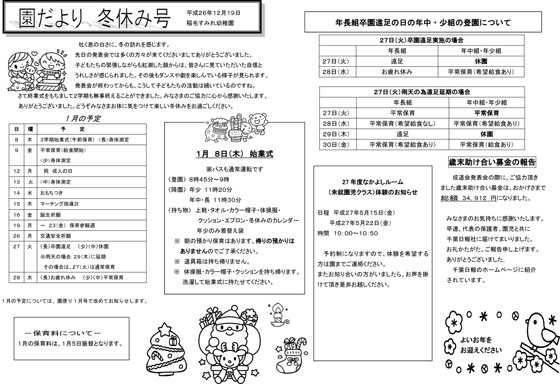 園だより 冬休み号
平成26年12月19日
稲毛すみれ幼稚園
吐く息の白さに、冬の訪れを感じます。
先日の発表会では多くの方々が来てくださいましてありがとうございました。
子どもたちの緊張しながらも紅潮した顔からは、皆さんに見ていただいた自信と
うれしさが感じられました。その後もダンスや劇を楽しんでいる様子が見られます。
発表会が終わってからも、こうして子どもたちの活動は続いているのですね。
さて終業式をもちまして2学期も無事終えることができました。みなさまのご協力に心から感謝いたします。
ありがとうございました。どうぞみなさまお体に気をつけて楽しい冬休みをお過ごしください。
1月の予定
日 曜 予 定
8 木 3学期始業式(午前保育) (長)身体測定
9 金 平常保育(給食開始)
(少)身体測定
12 月 祝 成人の日
13 火 (中)身体測定
14 水 おもちつき
15 木 マーチング指導日
16 金 誕生祈願
19 月 ~ 23(金) 保育参観週
26 月 交通安全祈願
27 火 (長)卒園遠足 (少)(中)休園
※雨天の場合 29(木)に延期
その場合は、27(火)は通常保育
28 水 (長)お疲れ休み (少)(中)平常保育
1月の予定については、園便り1月号で改めてお知らせします。
-保育料について-
1月の保育料は、1月5日振替となります。
1月 8日(木) 始業式
※バスも通常運転です
(登園) 8時45分~9時
(降園) 年少 11時20分
年中・長 11時30分
(持ち物) 上靴・タオル・カラー帽子・体操服・
クッション・エプロン・冬休みのカレンダー
年少のみ着替え袋
※ 朝の預かり保育はあります。帰りの預かりは
ありませんのでご了承ください。
※ 道具箱は持ち帰りません。
※ 体操服・カラー帽子・クッションを持ち帰ります。
洗濯して始業式に持たせてください。
年長組卒園遠足の日の年中・少組の登園について
27日(火)卒園遠足実施の場合
年長組 年中組・年少組
27日(火) 遠足 休園
28日(水) お疲れ休み 平常保育(希望給食あり)
27日(火)雨天の為遠足延期の場合
年長組 年中組・年少組
27日(火) 平常保育 平常保育
28日(水) 平常保育(希望給食なし) 平常保育(希望給食あり)
29日(木) 遠足 休園
30日(金) 平常保育(希望給食あり) 平常保育(希望給食あり)
27年度なかよしルーム
(未就園児クラス)体験のお知らせ
日程 平成27年5月15日(金)
平成27年5月22日(金)
時間 10:00~10:50
予約制になりますので、体験を希望する
方は園までご連絡ください。
またお知り合いの方がいましたら、お声を掛
けて頂き是非お越しください。
歳末助け合い募金の報告
成道会発表会の際に、ご協力頂き
ました歳末助け合い募金は、おかげさまで
総額 34,912 円になりました。
みなさまのお気持ちに感謝いたします。
早速、代表の保護者、園児と共に
千葉日報社に届けてまいりました。
お礼かたがた、ご報告申し上げます。
ありがとうございました。
千葉日報のホームページに紹介
されています。
よいお年を
お迎えください